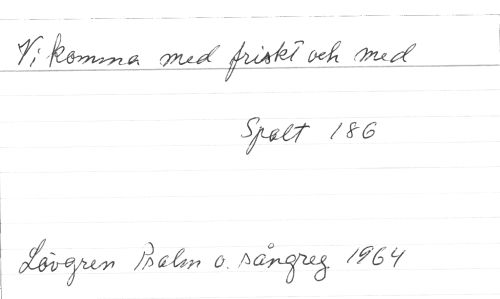 Vi komma med friskt och med
Spalt 186
Lövgren Psalm o. sångreg 1964